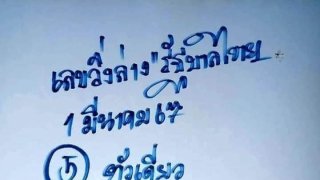 เลขวิ่งล่าง "รัฐบาลไทย"
1 มีนาคม 67
5 ตัวเดียว